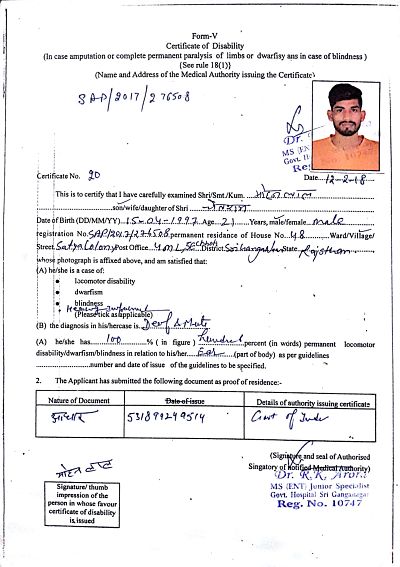 Form-V
Certificate of Disability
(In case amputation or complete permanent paralysis of limbs or dwarfisy ans in case of blindness )
(See rule 18(1)}
(Name and Address of the Medical Authority issuing the Certificate)
SAP/2017/276508
Dr.
MS (ENT)
Govt. H
Reg. No. 10747
Certificate No. 20
Date 12-2-18
This is to certify that I have carefully examined Shri/Smt./Kum.
son/wife/daughter of Shri
Date of Birth (DD/MM/YY) 15-04-1997 Age 21 Years, male/female male
registration No. SAP/2017/276508 permanent residence of House No. 48 Ward/Village/
Street Satya Colony Post Office District Sriganganagar State Rajasthan
whose photograph is affixed above, and am satisfied that:
(A) he/she is a case of:
• locomotor disability
• dwarfism
• blindness
Hearing Impaired
(Please tick as applicable)
(B) the diagnosis in his/hercase is Deaf & Mute
(A) he/she has 100 % ( in figure ) Hundred percent (in words) permanent locomotor
disability/dwarfism/blindness in relation to his/her Ear (part of body) as per guidelines
number and date of issue of the guidelines to be specified.
2. The Applicant has submitted the following document as proof of residence:-
Nature of Document Date of issue Details of authority issuing certificate
आधार 531899249514 Govt of India
(Signature and seal of Authorised
Singatory of Notified Medical Authority)
Dr. R.K. Arora
MS (ENT) Junior Specialist
Govt. Hospital Sri Ganganagar
Reg. No. 10747
Signature/ thumb
impression of the
person in whose favour
certificate of disability
is issued